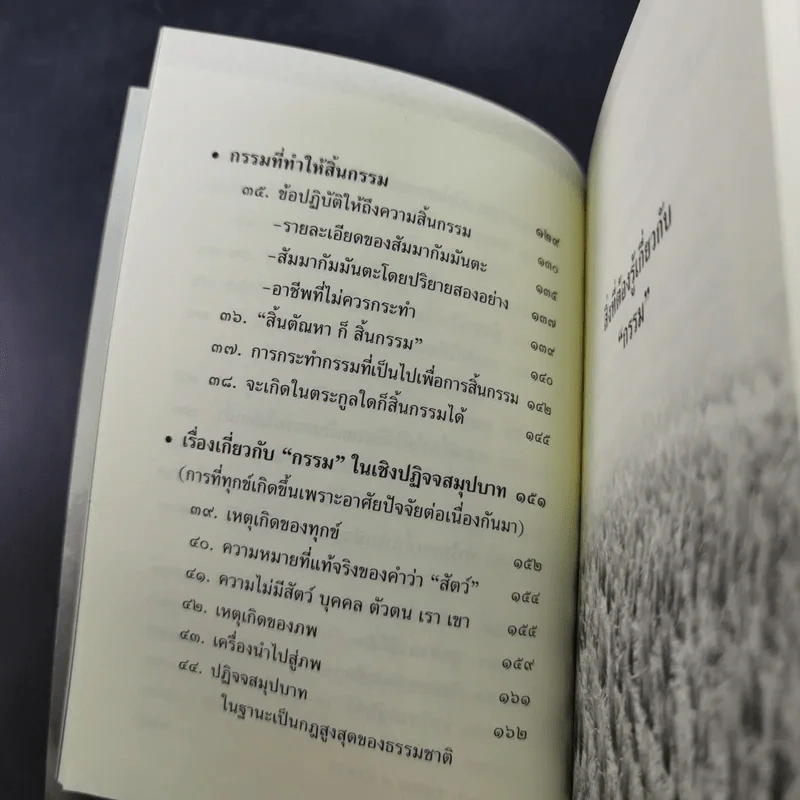 • กรรมที่ทำให้สิ้นกรรม ๑๒๙
๓๕. ข้อปฏิบัติให้ถึงความสิ้นกรรม ๑๓๐
-รายละเอียดของสัมมากัมมันตะ ๑๓๕
-สัมมากัมมันตะโดยปริยายสองอย่าง ๑๓๗
-อาชีพที่ไม่ควรกระทำ ๑๓๙
๓๖. “สิ้นตัณหา ก็ สิ้นกรรม” ๑๔๐
๓๗. การกระทำกรรมที่เป็นไปเพื่อการสิ้นกรรม ๑๔๒
๓๘. จะเกิดในตระกูลใดก็สิ้นกรรมได้ ๑๔๕
• เรื่องเกี่ยวกับ “กรรม” ในเชิงปฏิจจสมุปบาท ๑๕๑
(การที่ทุกข์เกิดขึ้นเพราะอาศัยปัจจัยต่อเนื่องกันมา)
๓๙. เหตุเกิดของทุกข์ ๑๕๒
๔๐. ความหมายที่แท้จริงของคำว่า “สัตว์” ๑๕๔
๔๑. ความไม่มีสัตว์ บุคคล ตัวตน เรา เขา ๑๕๕
๔๒. เหตุเกิดของภพ ๑๕๙
๔๓. เครื่องนำไปสู่ภพ ๑๖๑
๔๔. ปฏิจจสมุปบาท ๑๖๒
ในฐานะเป็นกฎสูงสุดของธรรมชาติ
สิ่งที่ต้องรู้เกี่ยวกับ
“กรรม”